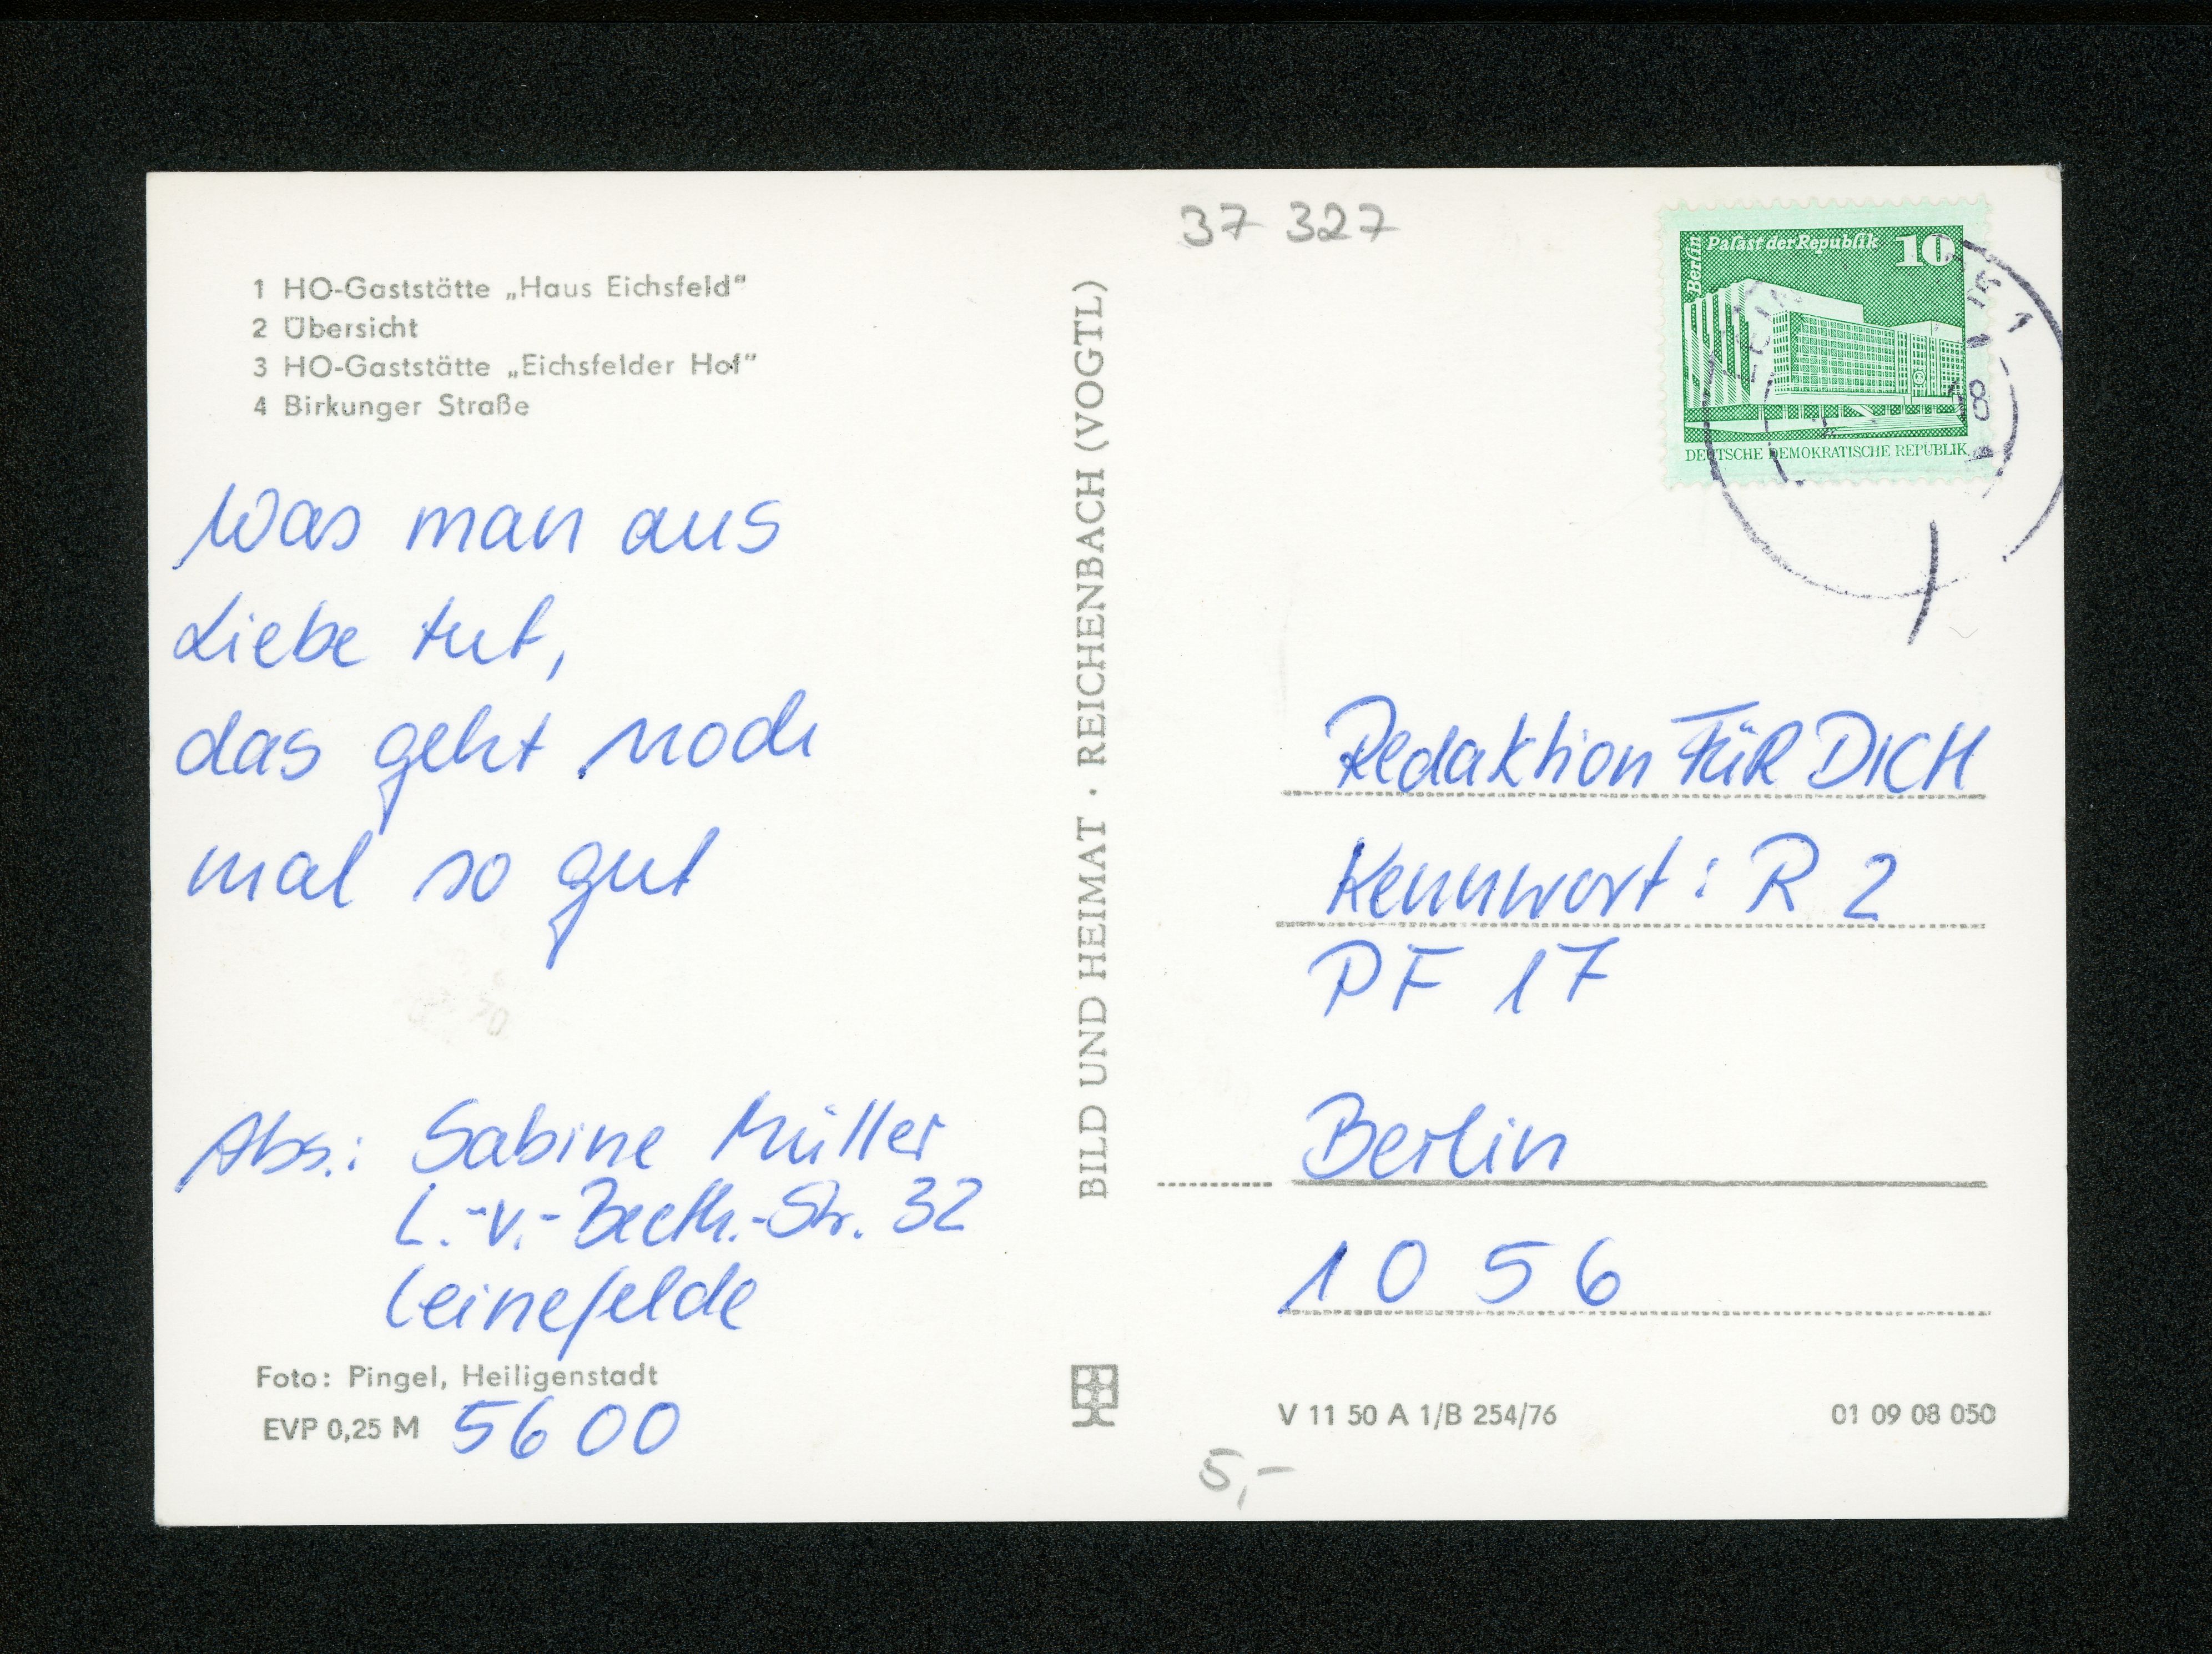 37 327
1 HO-Gaststätte „Haus Eichsfeld"
2 Übersicht
3 HO-Gaststätte „Eichsfelder Hof"
4 Birkunger Straße
Was man aus
Liebe tut,
das geht noch
mal so gut
Abs.: Sabine Müller
L.-v.-Beeth.-Str. 32
Leinefelde
Foto: Pingel, Heiligenstadt
EVP 0,25 M 5600
BILD UND HEIMAT · REICHENBACH (VOGTL)
Berlin
Palast der Republik 10
DEUTSCHE DEMOKRATISCHE REPUBLIK
Redaktion FÜR DICH
Kennwort: R 2
PF 17
Berlin
1056
V 11 50 A 1/B 254/76 01 09 08 050
5,-